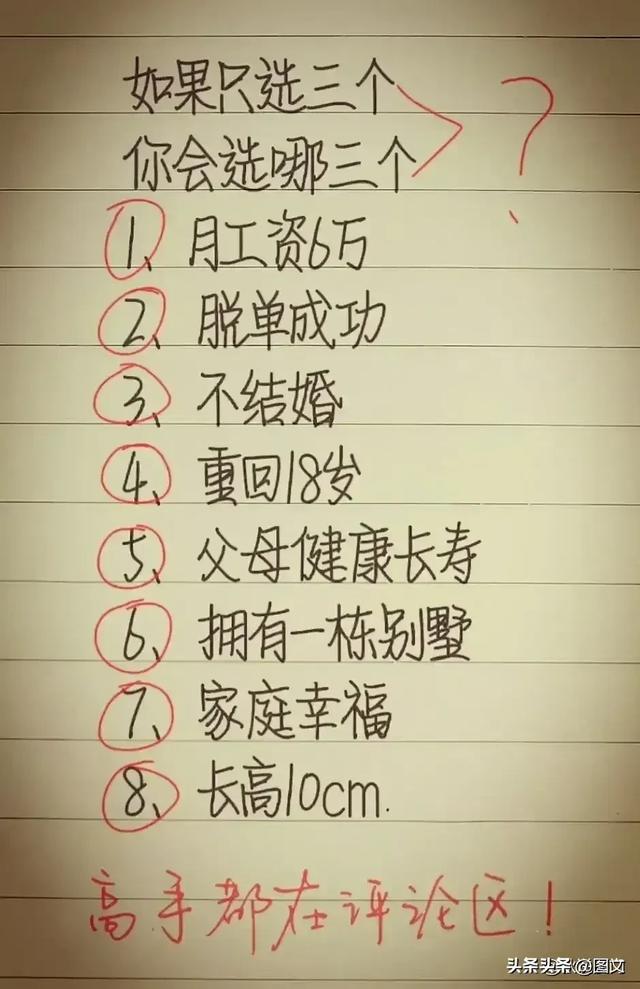 如果只选三个
你会选哪三个
?
1、月工资6万
2、脱单成功
3、不结婚
4、重回18岁
5、父母健康长寿
6、拥有一栋别墅
7、家庭幸福
8、长高10cm.
高手都在评论区!
头条头条 @图文